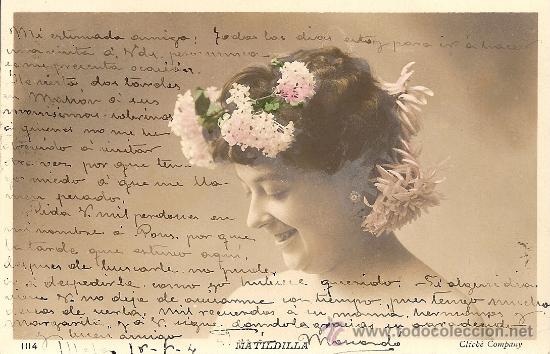 Mi estimada amiga: Todos los dias estoy para ir á hacer
una visita á Vds. pero nunca
se me presenta ocasión.
He visto dos tardes
en Mahón á sus
monísimas sobrinas
á quienes no me he
atrevido á invitar
otra vez, por que ten-
go miedo á que me lla-
men pesado.
Pida V. mil perdones en
mi nombre á Pons, por que
la tarde que estuvo aqui,
despues de buscarle no pude
despedirle como yo hubiese querido. Si algun dia
viene V. no deje de avisarme con tiempo, pues tengo mucha
gana de verla. Mil recuerdos á su mamá, hermanas y
Margarita, y á V. sigue
su buen amigo
1114
MATILDILLA
Cliché Company
todocoleccion.net